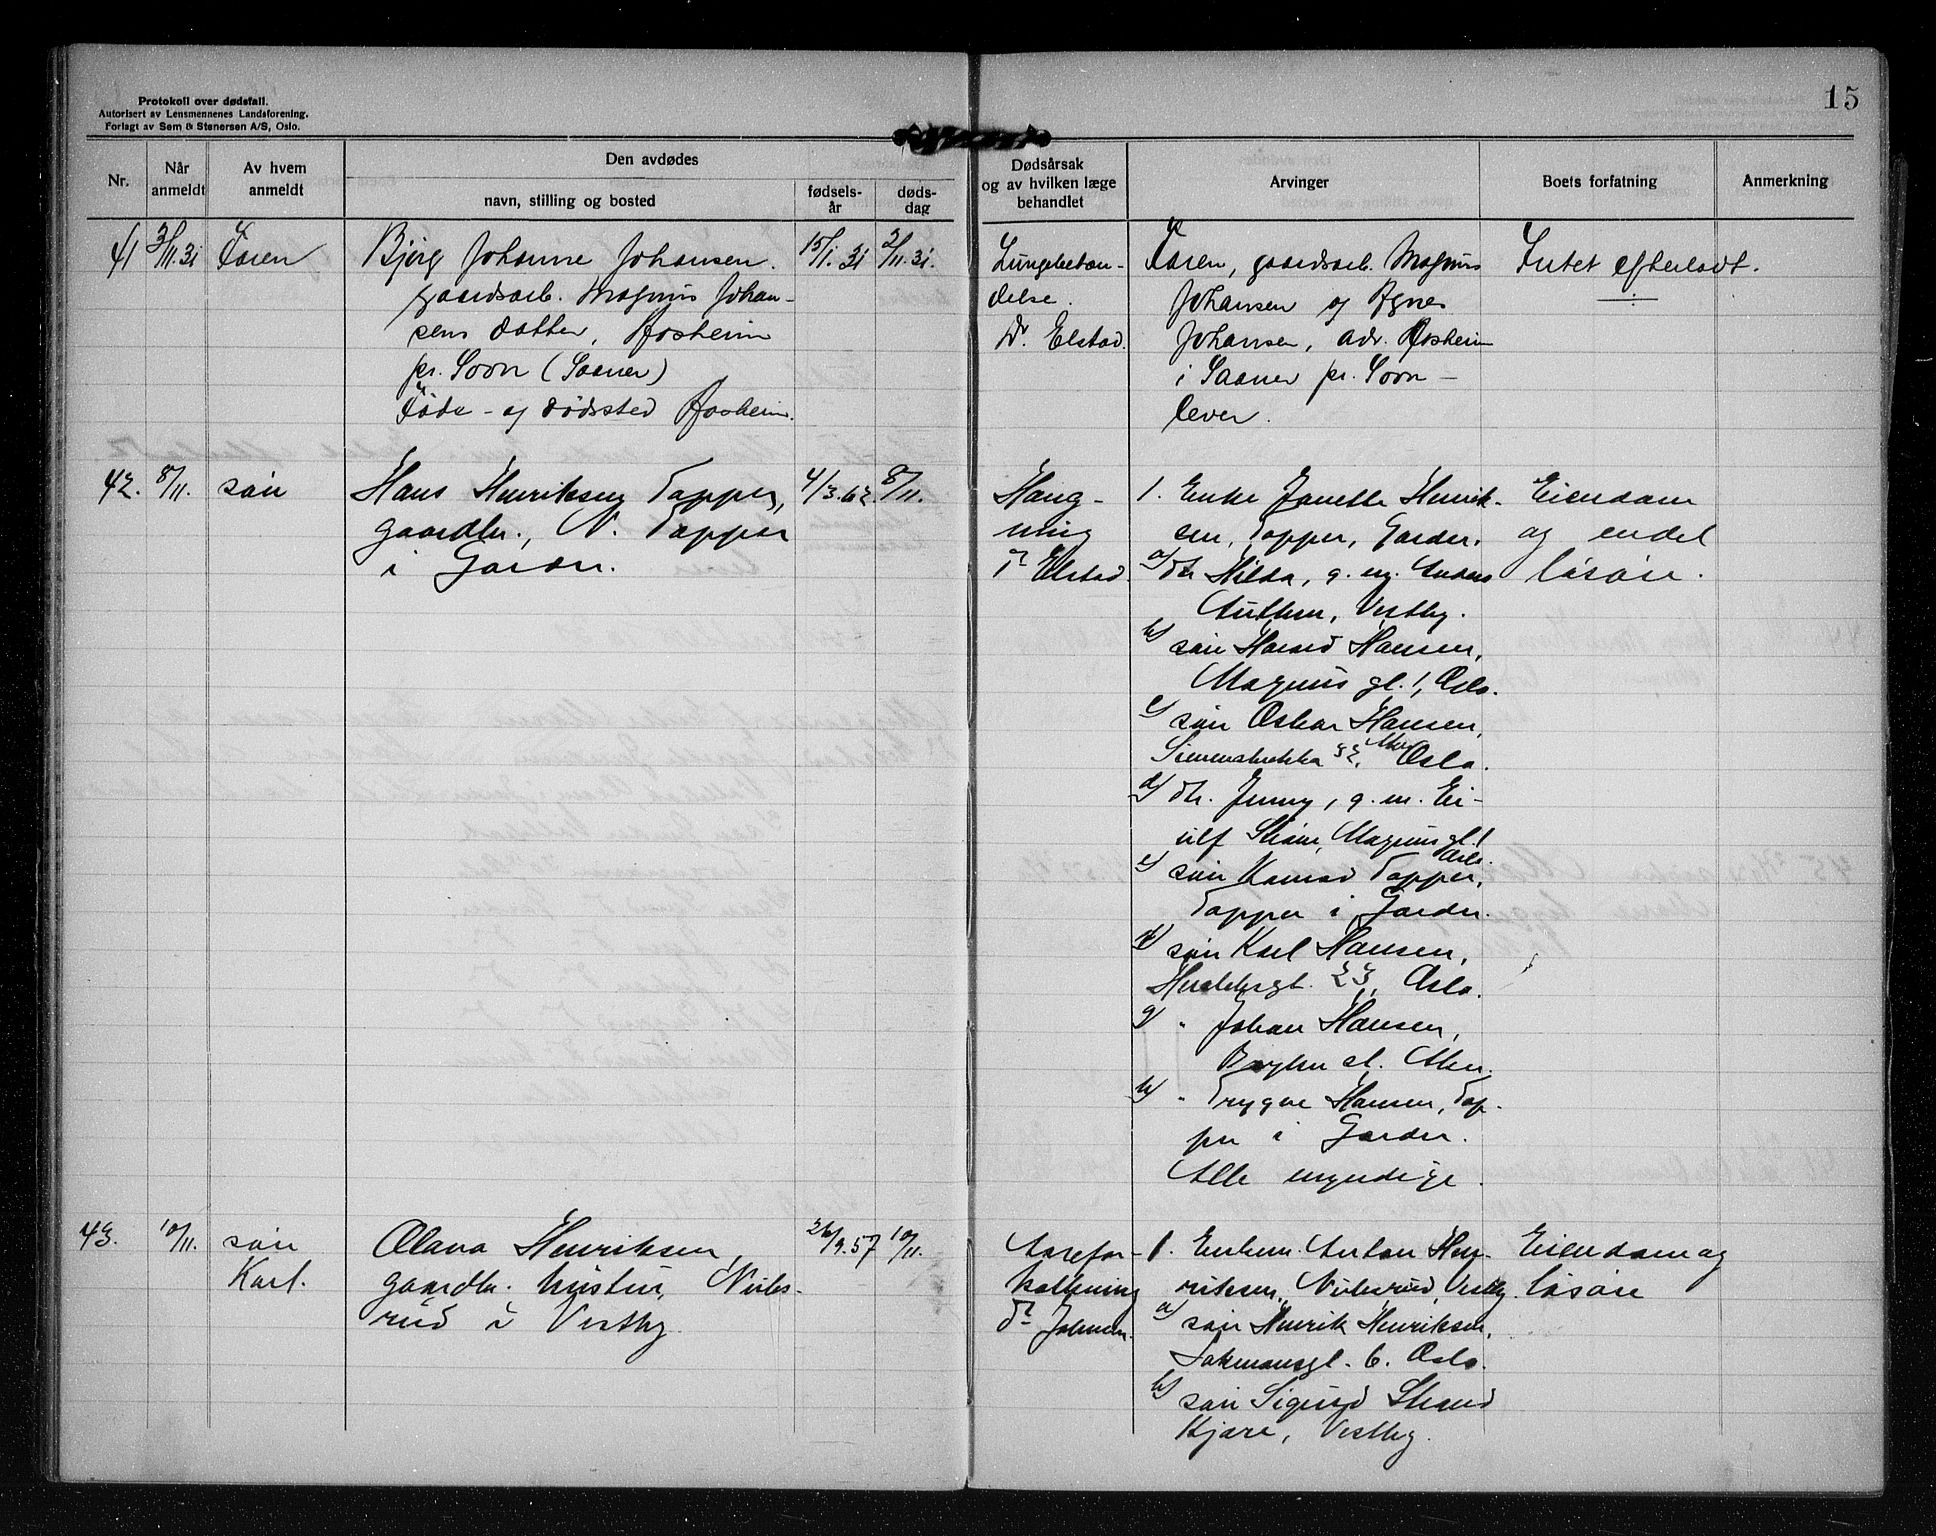 15
Protokoll over dødsfall.
Autorisert av Lensmennenes Landsforening.
Forlagt av Sem & Stenersen A/S, Oslo.
Nr.
Når anmeldt
Av hvem anmeldt
Den avdødes
navn, stilling og bosted
fødsels-år
døds-dag
Dødsårsak
og av hvilken læge
behandlet
Arvinger
Boets forfatning
Anmerkning
41
3/11.31
Faren
Bjørg Johanne Johansen.
gaardsarb. Magnus Johan-
sens datter, Aasheim
pr. Soon (Saaner)
Føde- og dødssted Aasheim.
15/1.31
2/11.31.
Lungebetæn-
delse.
Dr. Elstad.
Faren, gaardsarb. Magnus
Johansen og Agnes
Johansen, adr. Aasheim
i Saaner pr. Soon –
lever.
Intet efterladt.
42.
8/11.
søn
Hans Henriksen Tapper,
gaardbr., N. Tapper
i Garder.
4/3.62.
8/11.
Hæng-
ning
Dr Elstad
1. Enke Janette Henrik-
sen, Tapper, Garder.
a) dtr. Hilda, g. m. Anders
Authen, Vestby.
b) søn Harald Hansen,
Magnus gt. 1, Oslo.
c) søn Oskar Hansen,
Oslo.
d) dtr. Jenny, g. m. Ei-
ulf Magnus gt. 1
Oslo.
e) søn Konrad Tapper,
Tapper i Garder.
f) søn Karl Hansen,
23, Oslo.
g) " Johan Hansen,
Aker.
h) " Trygve Hansen, Tap-
per i Garder.
Alle myndige.
Eiendom
og endel
løsøre.
43.
10/11.
søn
Karl.
Olava Henriksen,
gaardbr. hustru,
rud i Vestby
26/9.57
10/11.
Aarefor-
kalkning
Dr Johnsen.
1. Enkem. Anton Hen-
riksen, Vestby.
a) søn Henrik Henriksen,
6. Oslo.
b) søn Sigurd Strand
Kjære, Vestby.
Eiendom og
løsøre